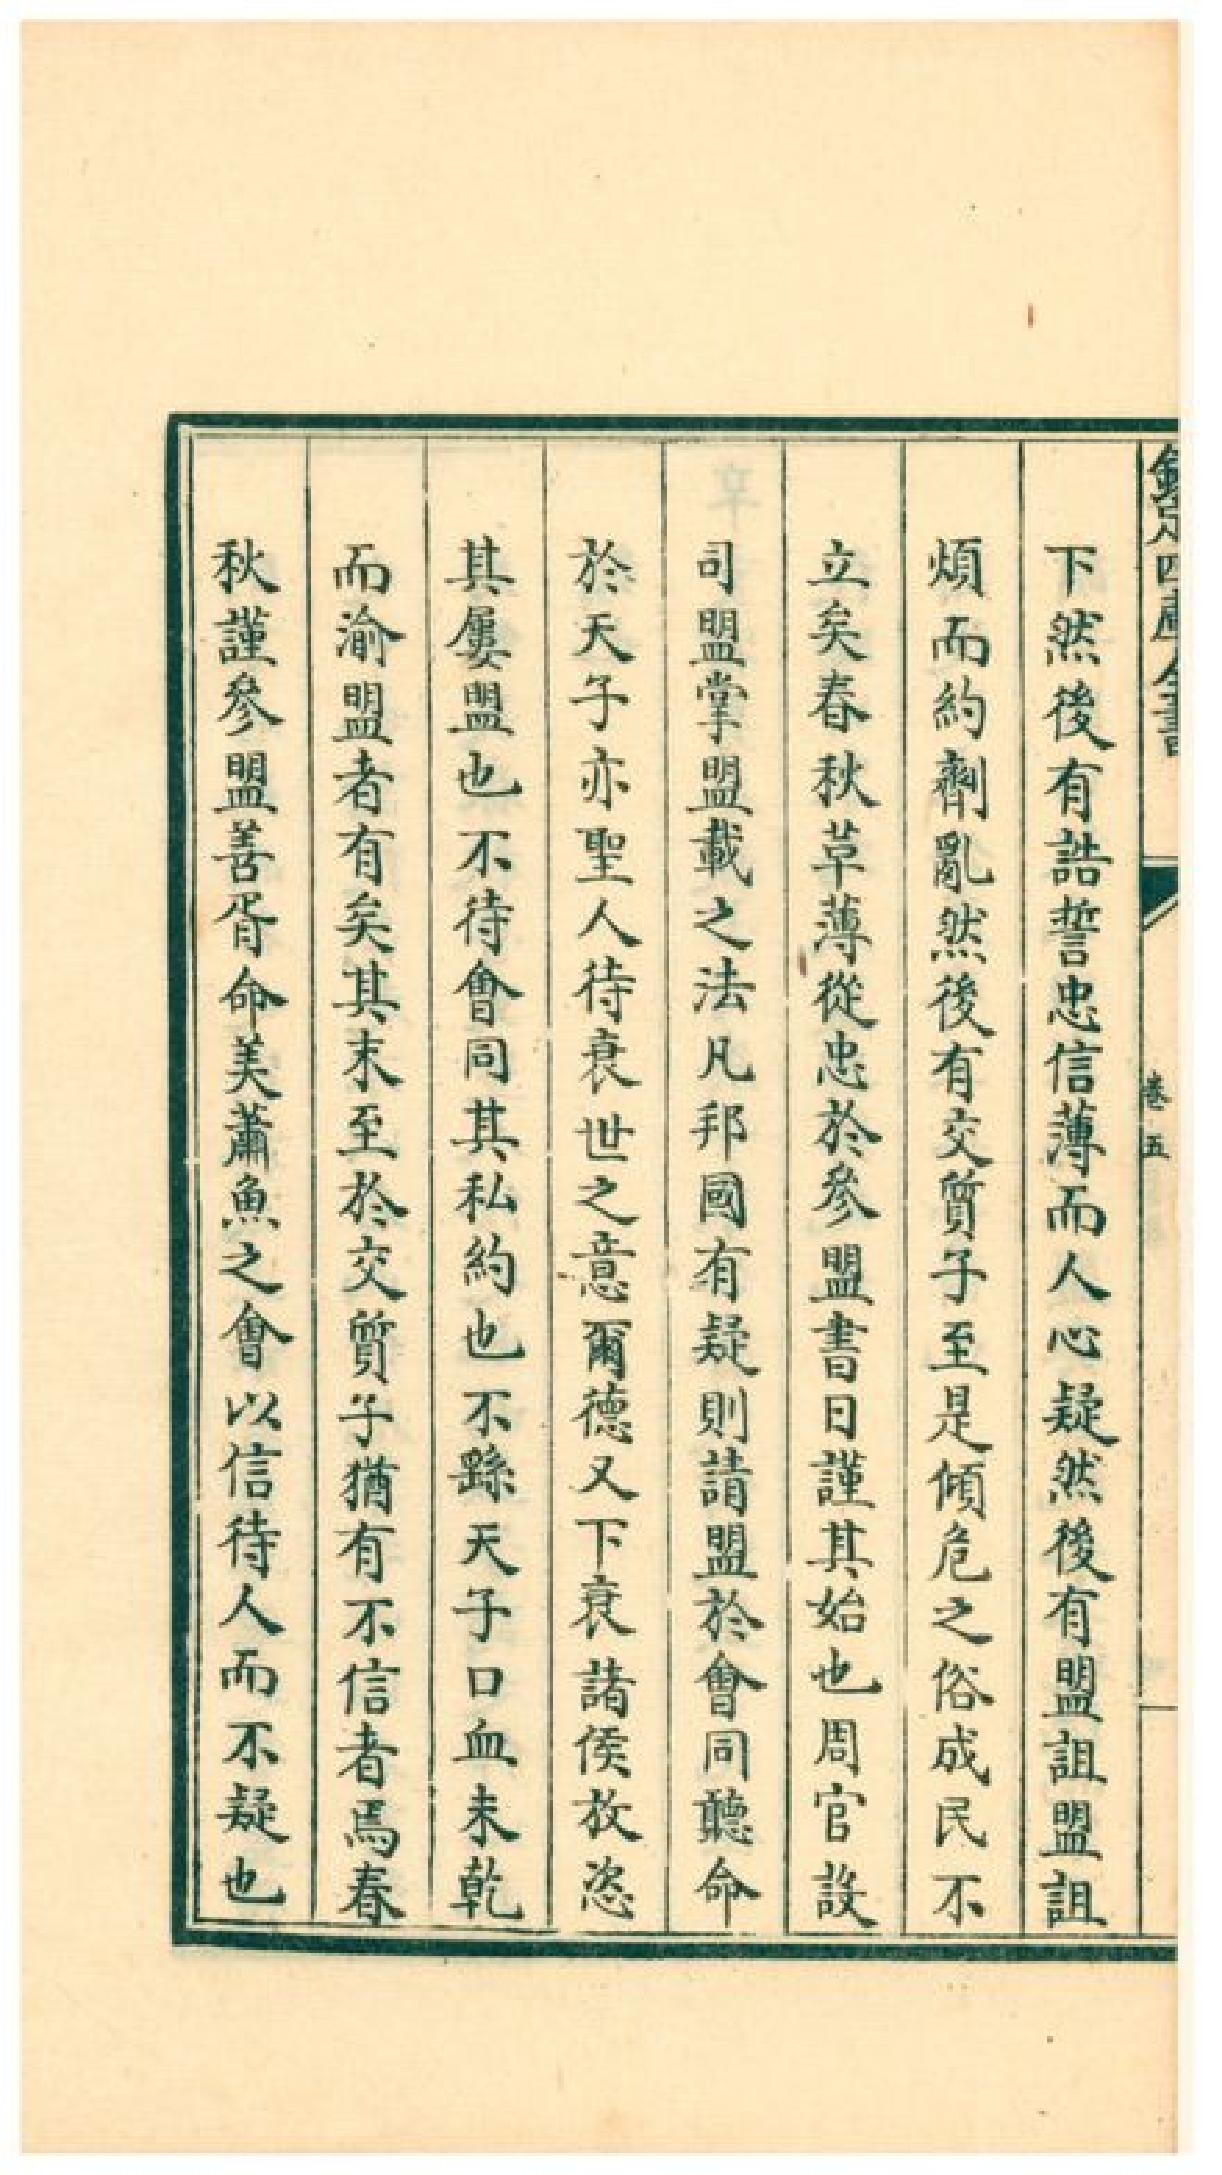 欽定四庫全書
卷五
下然後有誥誓忠信薄而人心疑然後有盟詛盟詛
煩而約劑亂然後有交質子至是傾危之俗成民不
立矣春秋革薄從忠於參盟書日謹其始也周官設
司盟掌盟載之法凡邦國有疑則請盟於會同聽命
於天子亦聖人待衰世之意爾德又下衰諸侯放恣
其屢盟也不待會同其私約也不繇天子口血未乾
而渝盟者有矣其末至於交質子猶有不信者焉春
秋謹參盟善胥命美蕭魚之會以信待人而不疑也